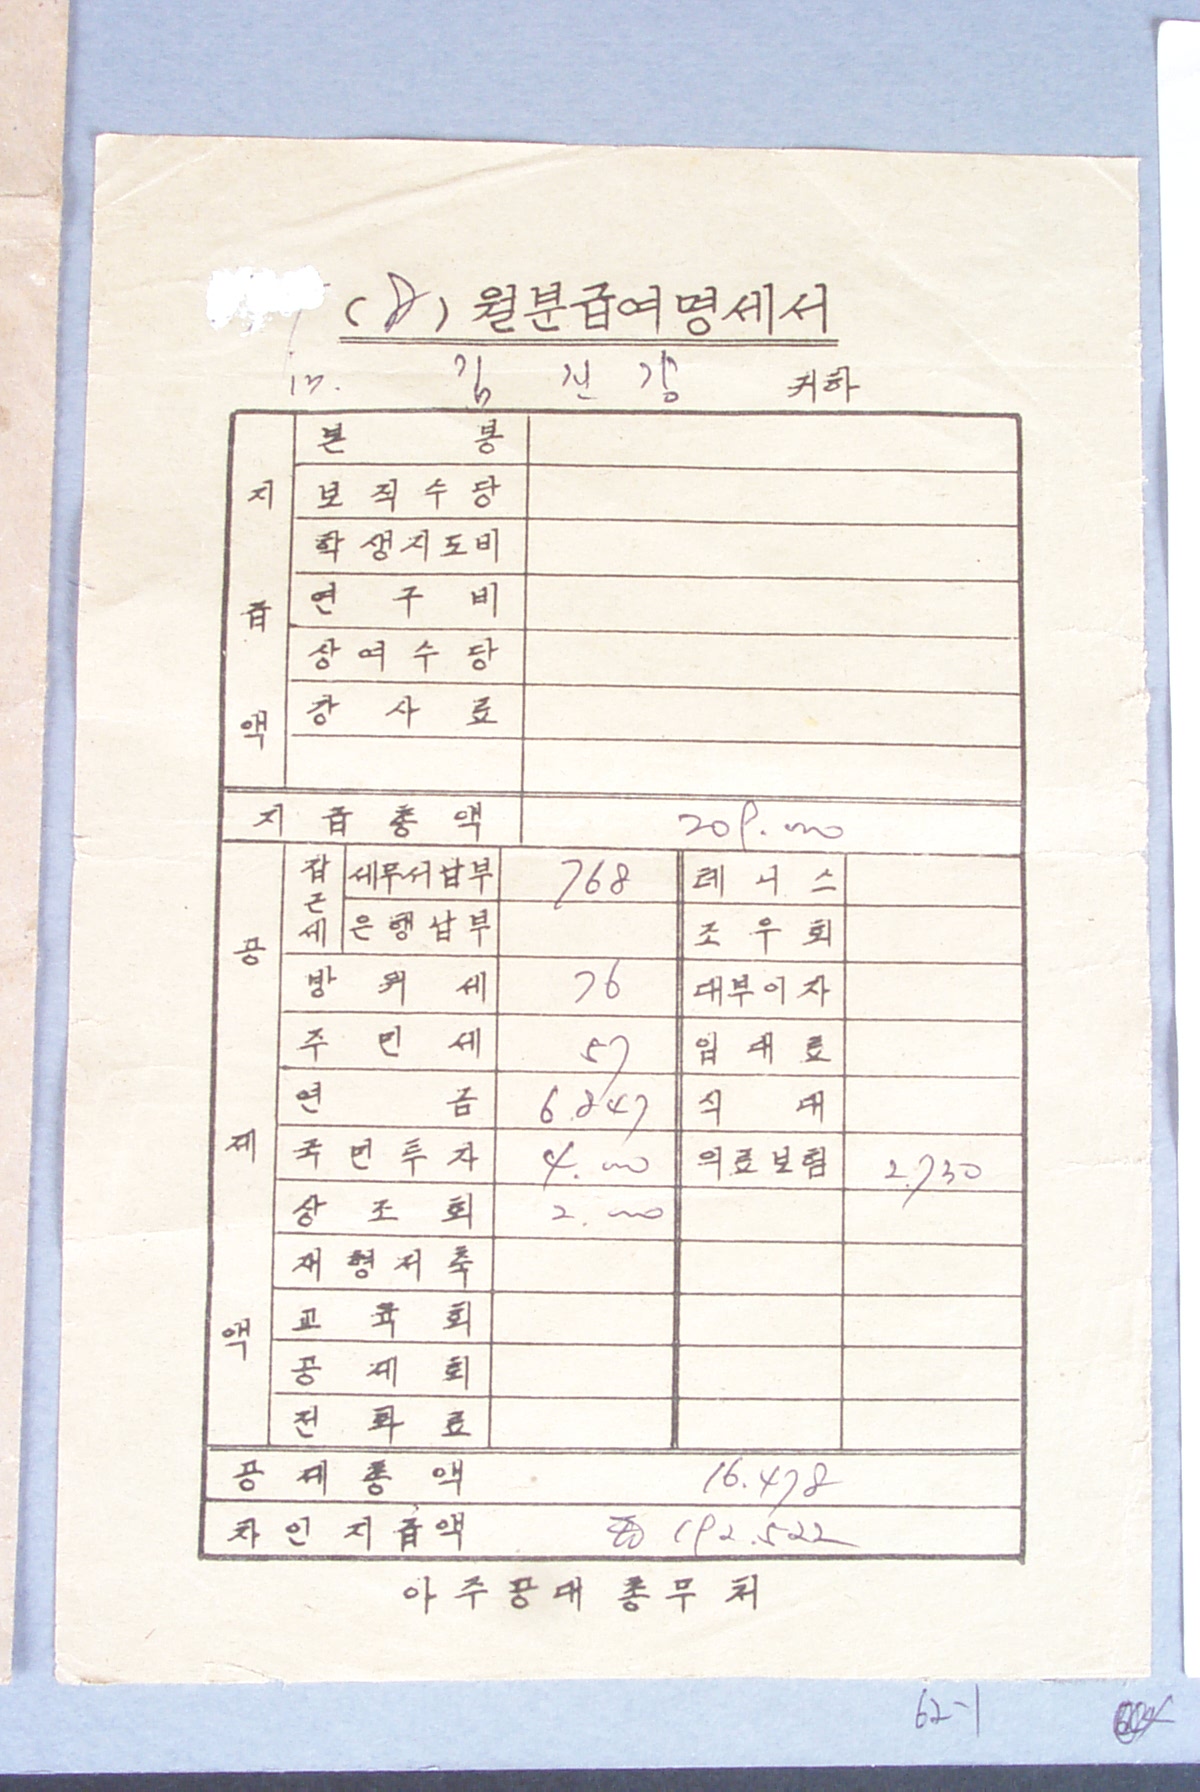 (8) 월분급여명세서
17. 김건강 귀하
지급액
본봉
보직수당
학생지도비
연구비
상여수당
강사료
지급총액 209.000
공제액
갑근세 세무서납부 768 테니스
은행납부 조우회
방위세 76 대부이자
주민세 57 임대료
연금 6.847 식대
국민투자 4.000 의료보험 2.730
상조회 2.000
재형저축
교육회
공제회
전화료
공제총액 16.478
차인지급액 192.522
아주공대총무처
62-1